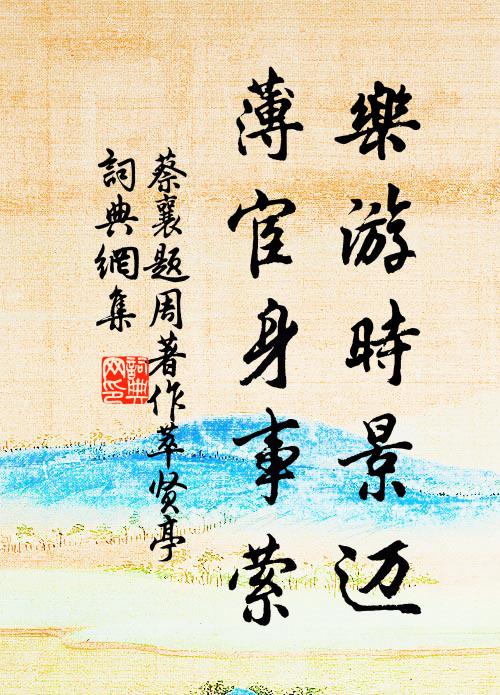 樂游時景迈
薄宦身事萦
蔡襄题周著作萃贤亭
詞典網集
詞典